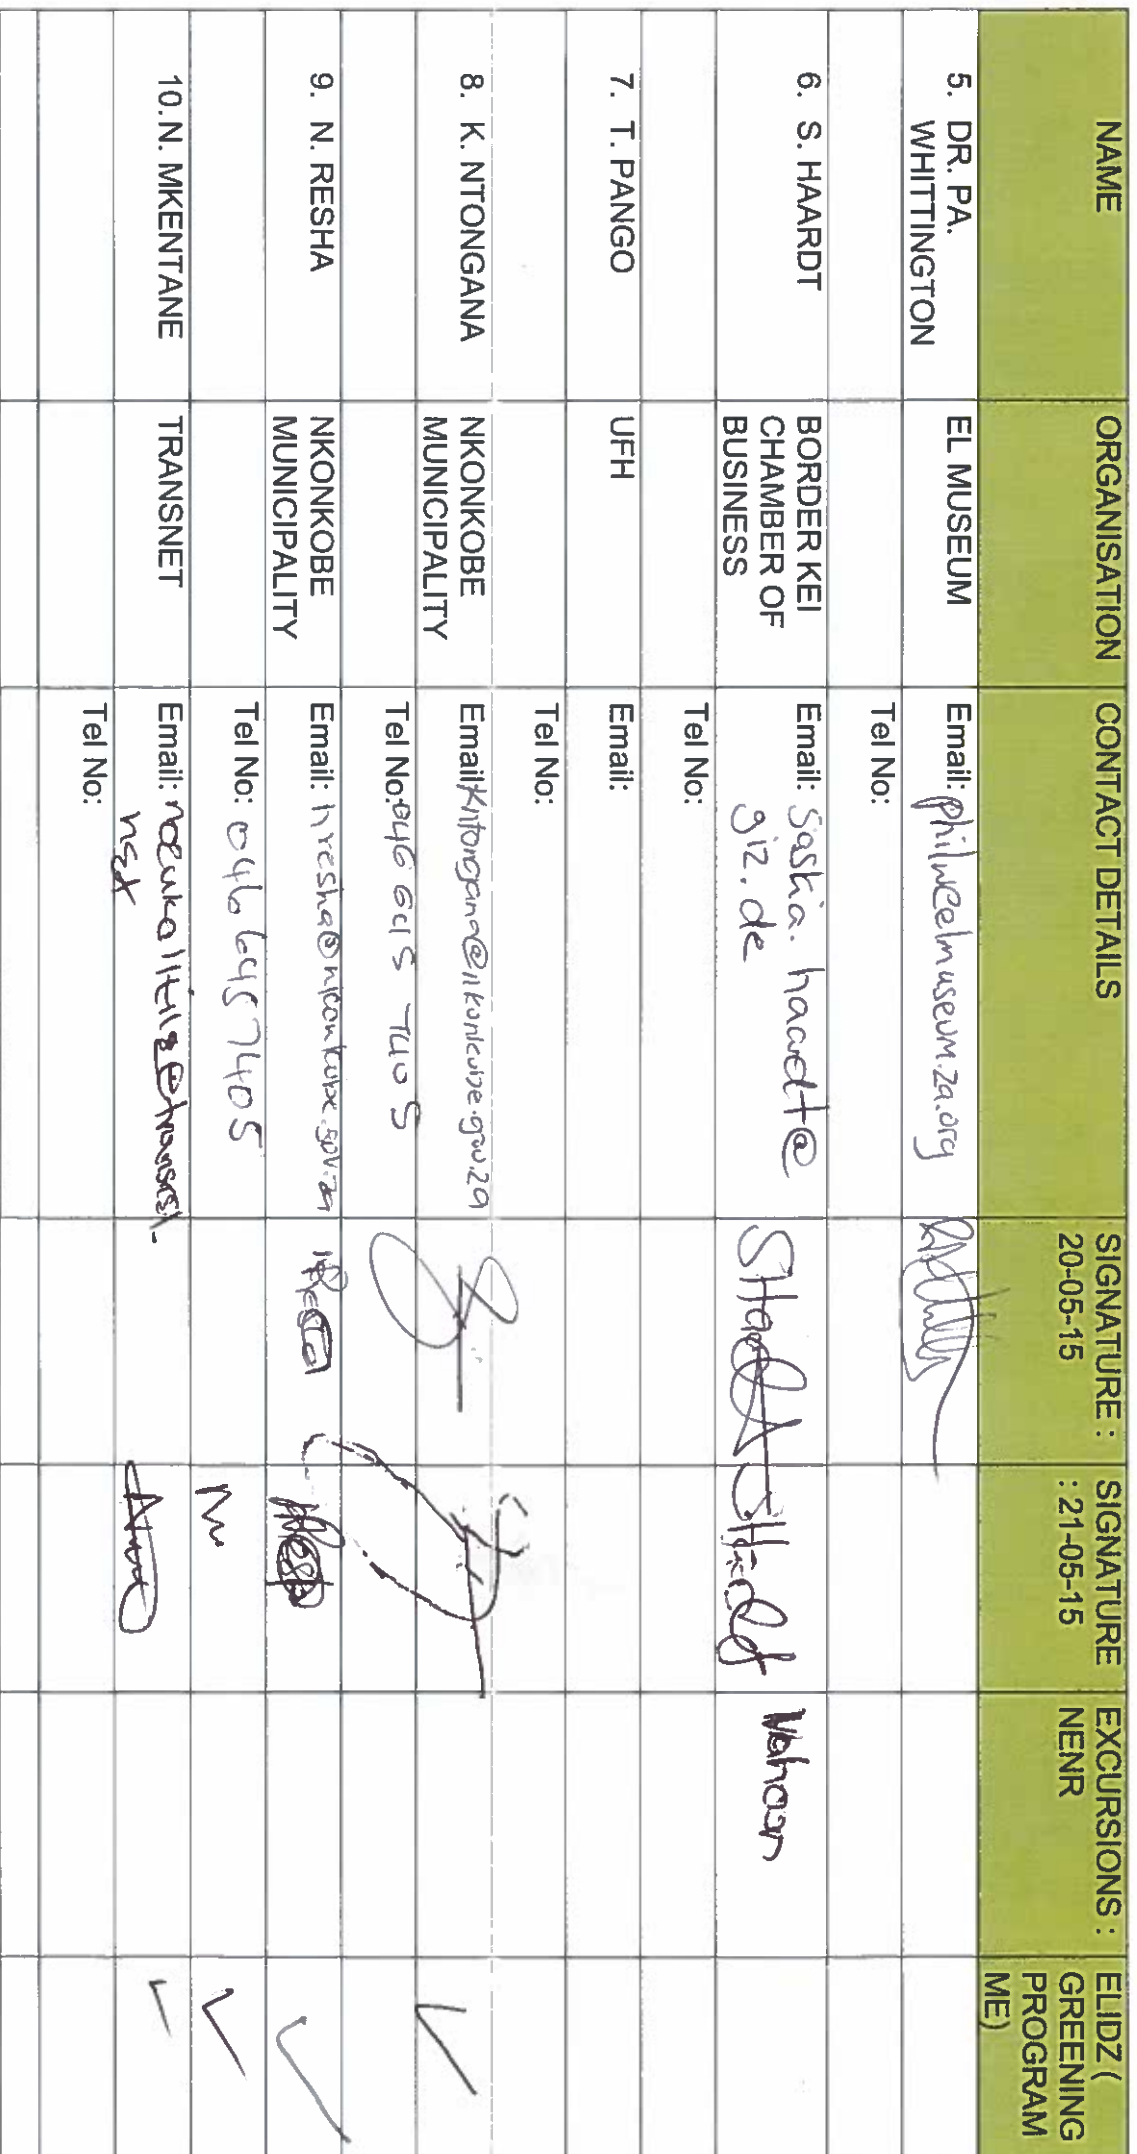 NAME
ORGANISATION
CONTACT DETAILS
SIGNATURE :
20-05-15
SIGNATURE
: 21-05-15
EXCURSIONS :
NENR
ELIDZ (
GREENING
PROGRAM
ME)
5. DR. PA.
WHITTINGTON
EL MUSEUM
Email: philw@elmuseum.za.org
Tel No:
6. S. HAARDT
BORDER KEI
CHAMBER OF
BUSINESS
Email: saskia.haardt@
giz.de
Nahoon
Tel No:
7. T. PANGO
UFH
Email:
Tel No:
8. K. NTONGANA
NKONKOBE
MUNICIPALITY
Email:
Tel No: 046 645
9. N. RESHA
NKONKOBE
MUNICIPALITY
Email:
Tel No: 046 645 7405
10. N. MKENTANE
TRANSNET
Email:
Tel No: